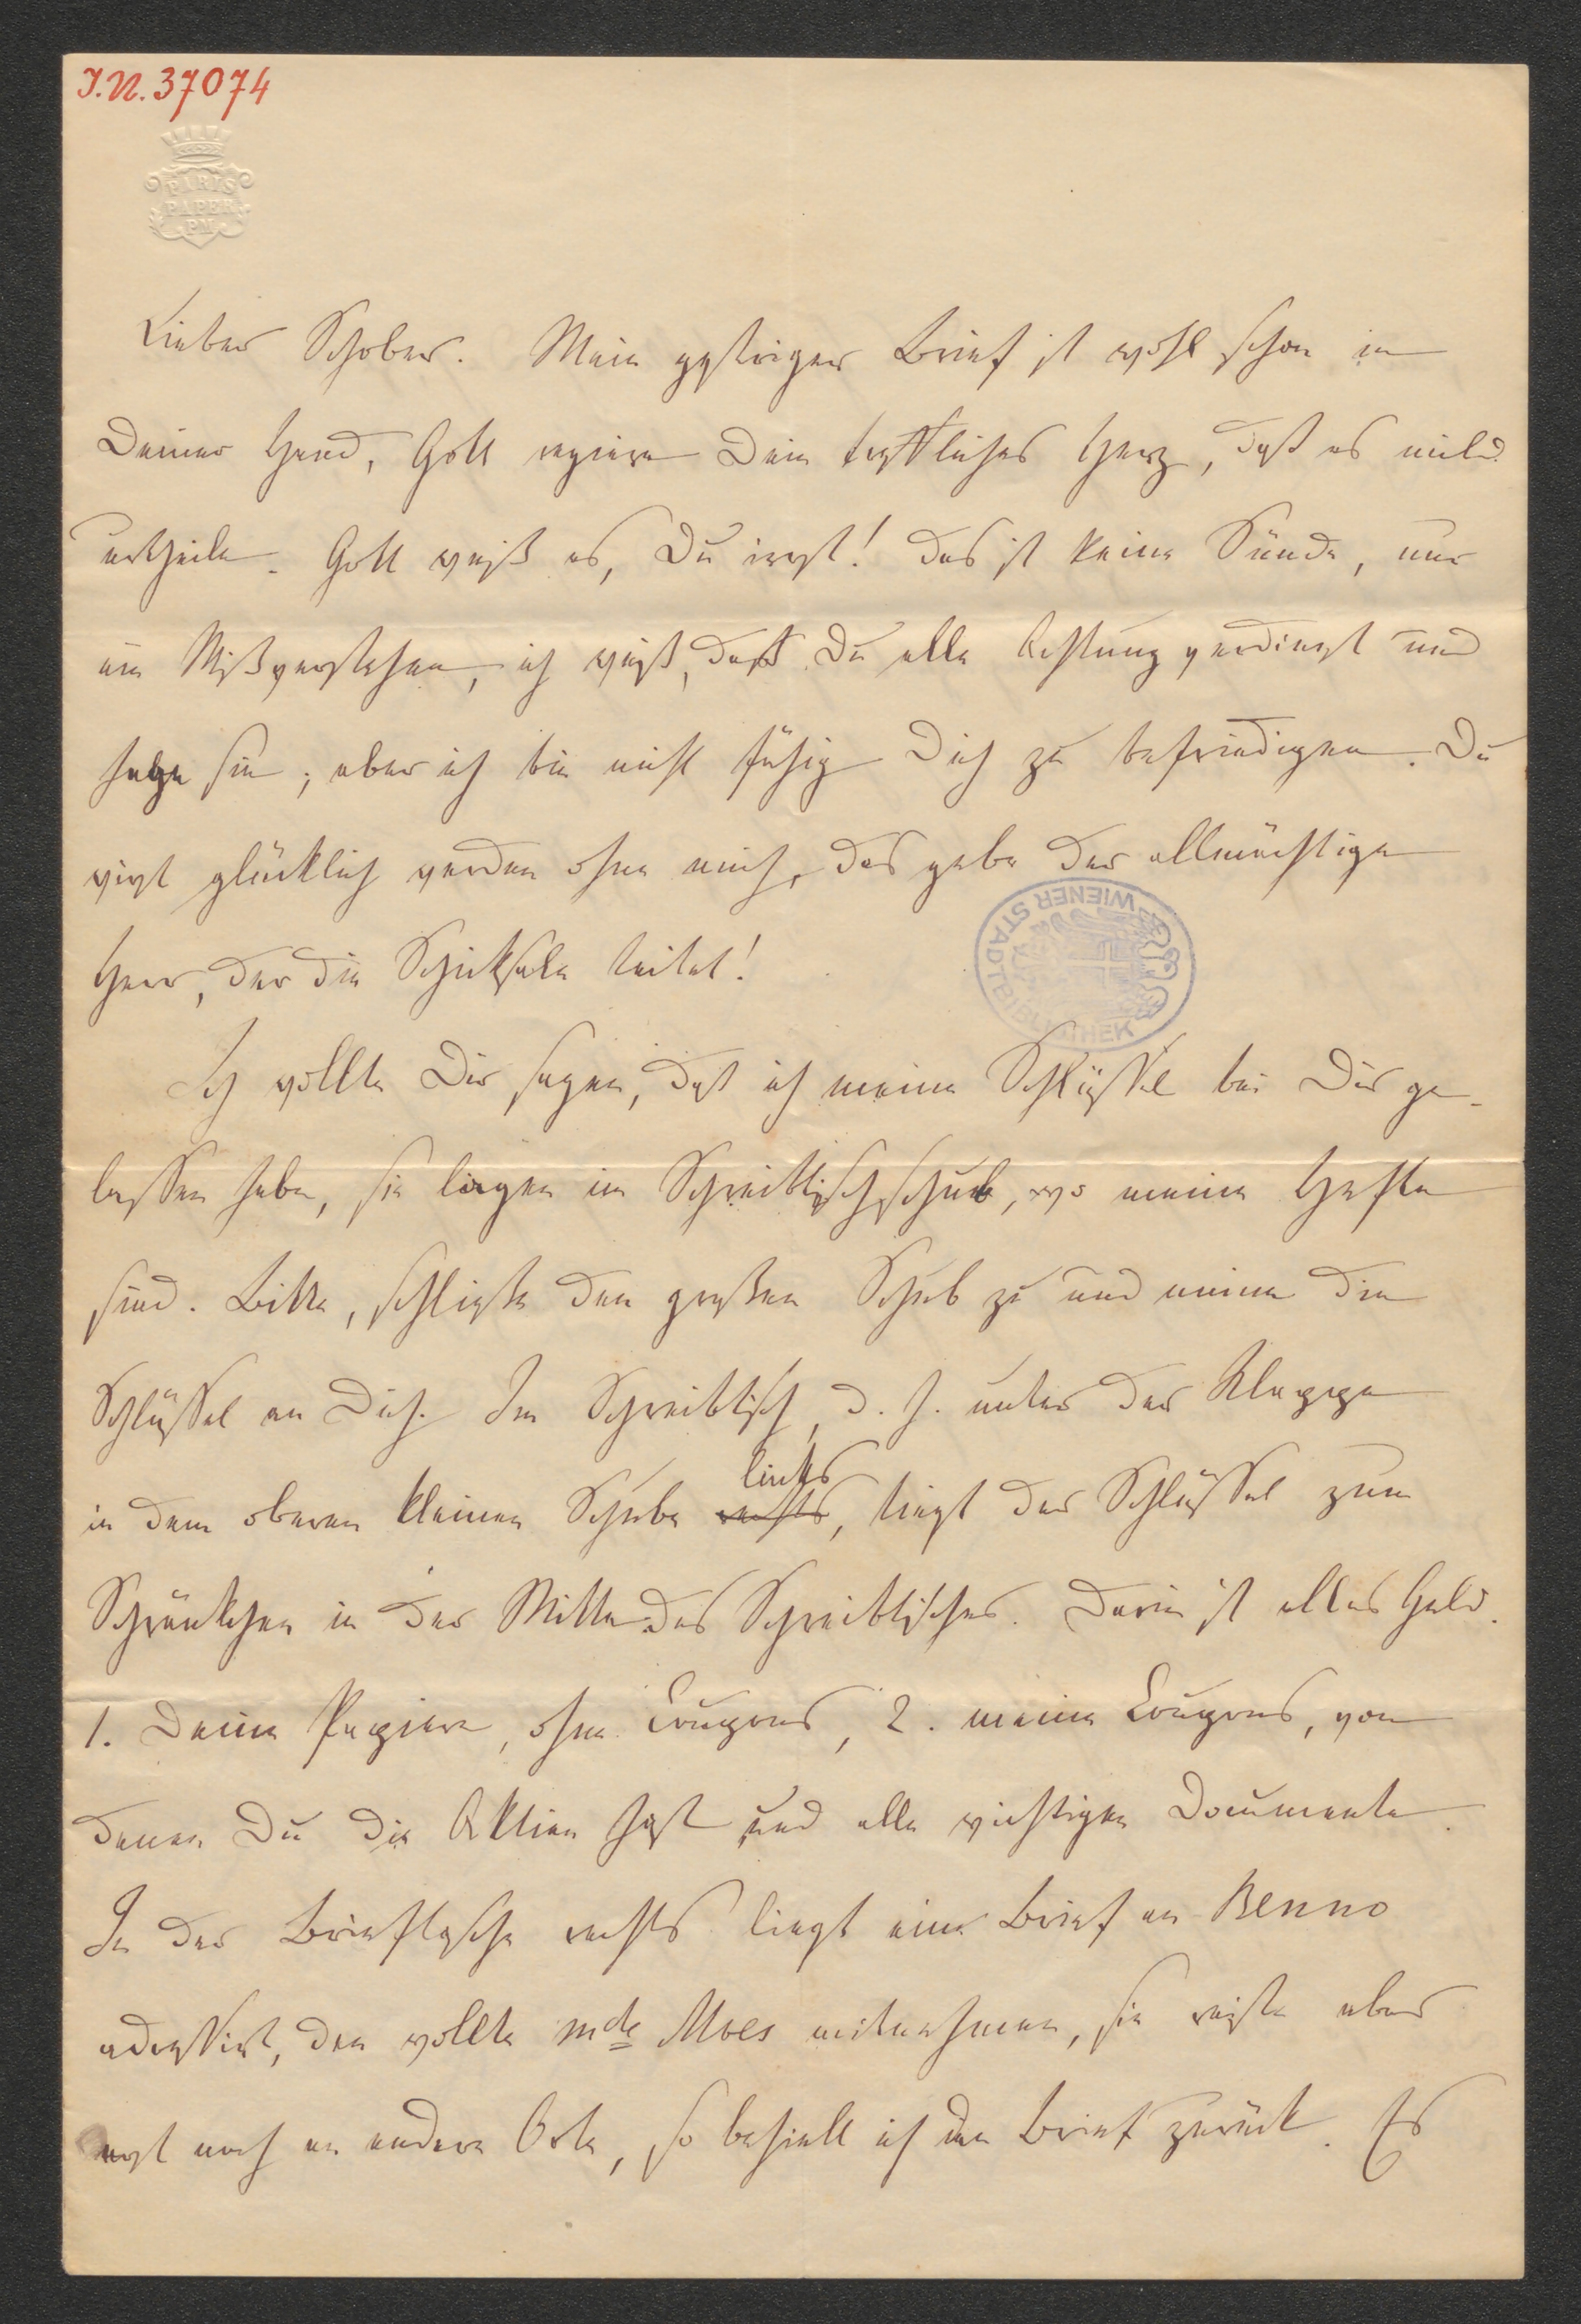 I.N. 37074
PARIS
PAPER
PM
Lieber Schober. Mein gestriger Brief ist wohl schon in
Deiner Hand, Gott regiere Dein treffliches Herz, daß es mild
urtheile. Gott weiß es, Du irrst! Das ist keine Sünde, nur
ein Mißverstehen, ich weiß, daß Du alle Achtung verdienst und
habe sie, aber ich bin nicht fähig Dich zu befriedigen. Du
wirst glücklich werden ohne mich, das gebe der allmächtige
Herr, der die Schicksale leitet!
WIENER STADTBIBLIOTHEK
Ich wollte Dir sagen, daß ich meine Schlüssel bei Dir ge-
lassen habe, sie liegen im Schreibtischschub, wo meine Hefte
sind. Bitte, schließe den großen Schub zu und nimm die
Schlüssel an Dich. Im Schreibtisch, d. h. unter der Klappe
in dem oberen kleinen Schube rechts links, liegt der Schlüssel zum
Schränkchen in der Mitte des Schreibtisches. Darin ist alles Geld.
1. Deine Papiere, ohne Coupons, 2. meine Coupons, von
denen Du die Aktien hast und alle wichtigen Documente.
In der Brieftasche rechts liegt ein Brief an Benno
adressirt, den wollte Mde Moes mitnehmen, sie reiste aber
erst noch an andere Orte, so behielt ich den Brief zurück. Es